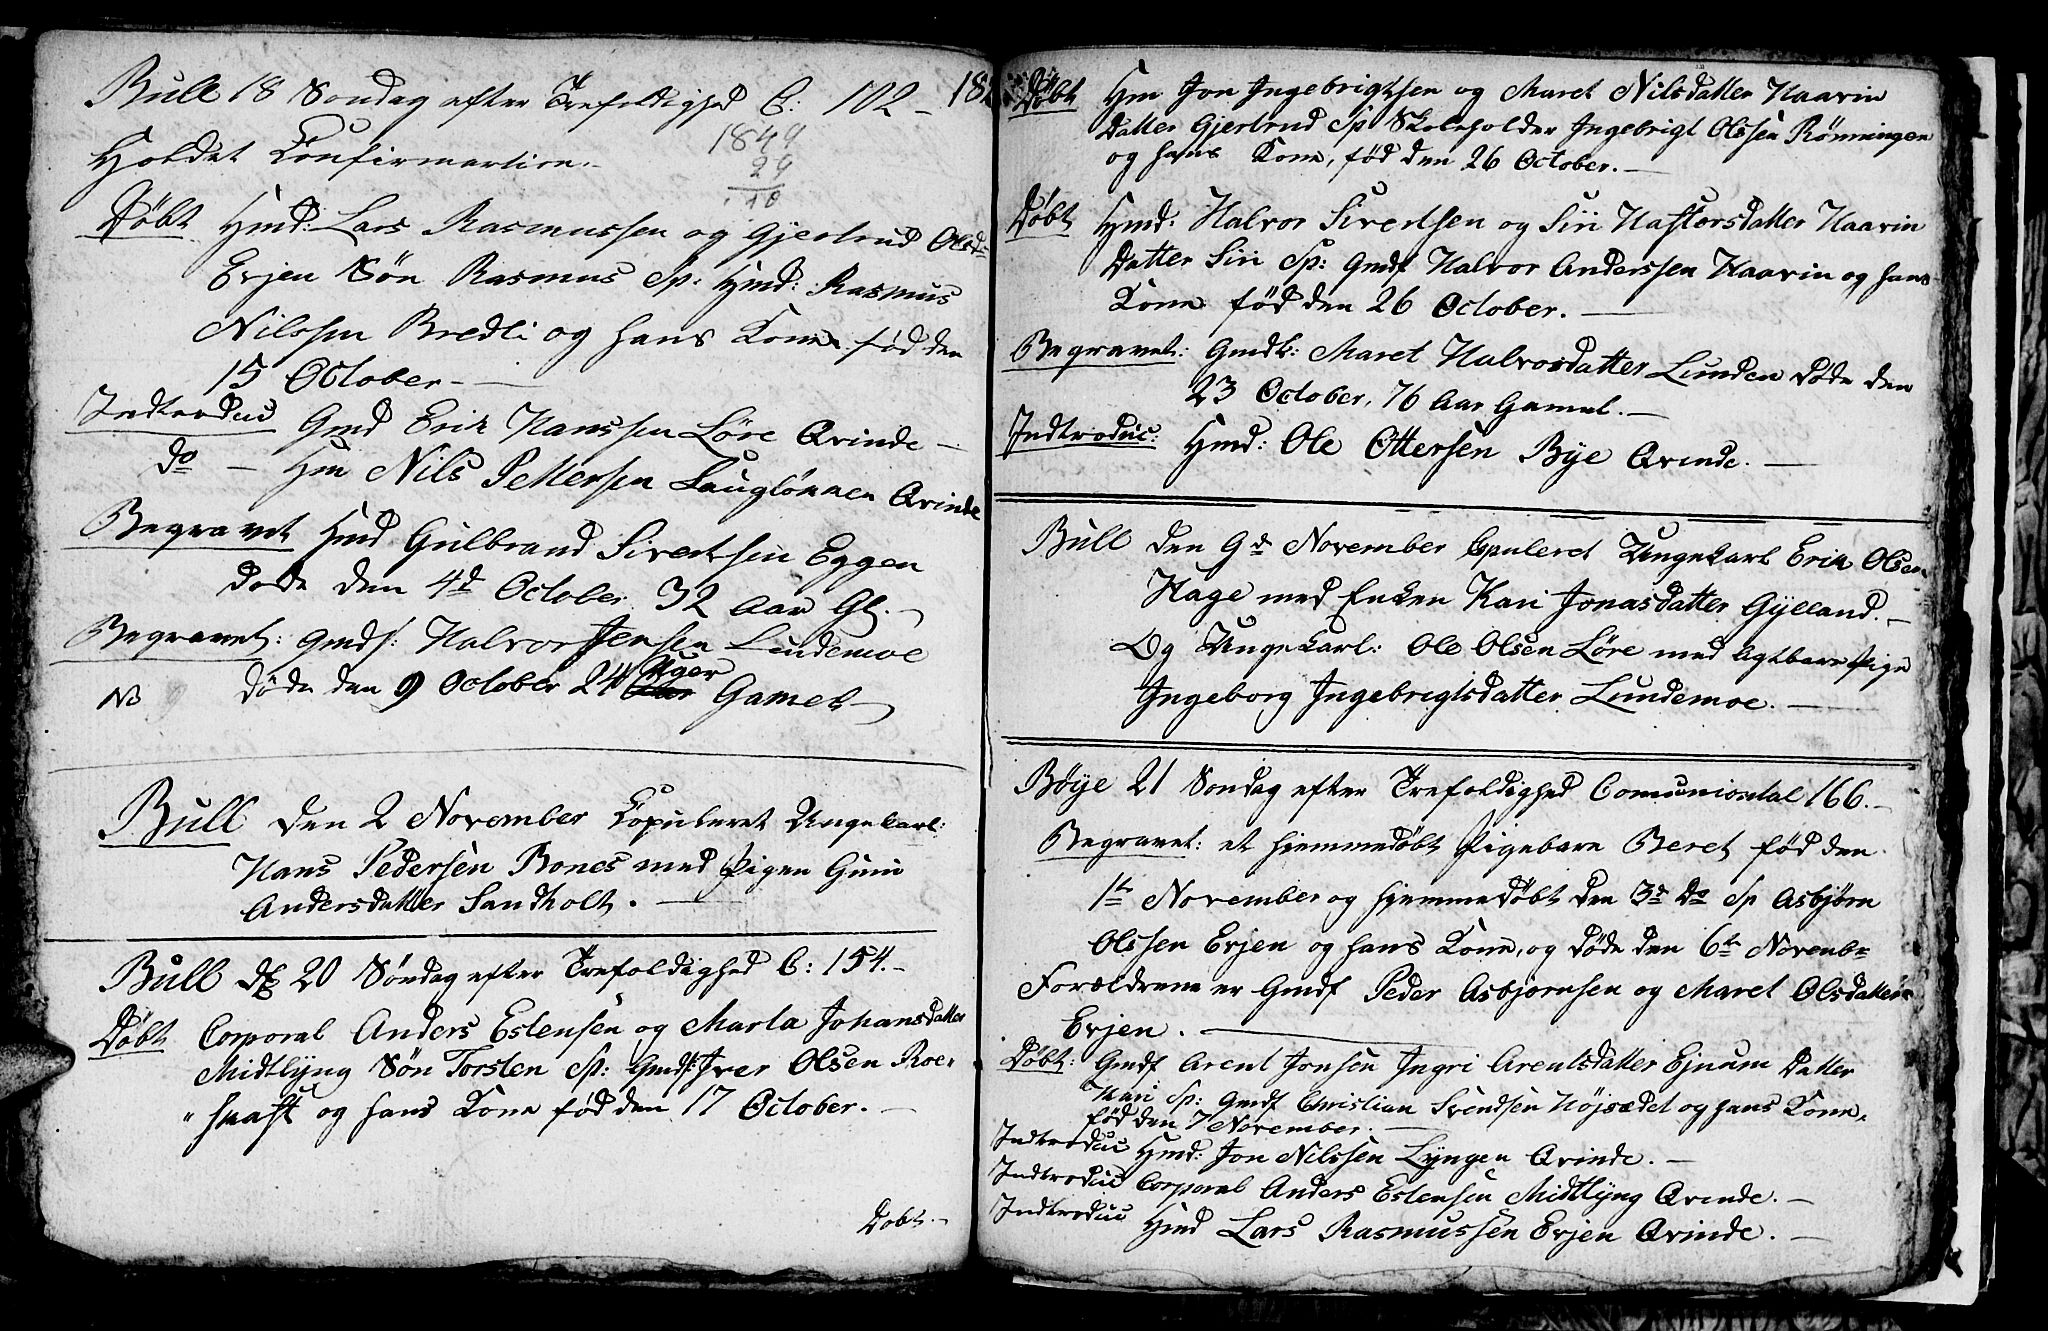 Bull 18 Søndag efter Trefoldighed C: 102 -
Holdet Confirmation.
1849
29
Døbt Hmd: Lars Rasmussen og Gjertrud Olsd:
Evjen Søn Rasmus Sp: Hmd: Rasmus
Nilssen Bredli og hans Kone. født den
15 October -
Indtroduc Gmd Erik Hanssen Løre Qvinde -
do - Hm Nils Pettersen Langlønnen Qvinde
Begravet Hmd Gulbrand Sivertsen Eggen
døde den 4d October 32 Aar Gl. -
Begravet: Gmds: Halvor Jensen Lundemoe
NB døde den 9 October 24 Uger Gamel -
Bull den 2 November Copuleret Ungekarl:
Hans Pedersen Bones med Pigen Guni
Andersdatter Sandholt. -
Bull D 20 Søndag efter Trefoldighed C: 154. -
Døbt Corporal Anders Estensen og Marta Johansdatter
Midtlyng Søn Torsten Sp: Gmds: Iver Olsen Roe-
" og hans Kone født den 17 October. -
Døbt. -
18
Døbt Hm Jon Ingebrigtsen og Maret Nilsdatter Haavin
Datter Gjertrud Sp Skoleholder Ingebrigt Olssen Rønningen
og hans Kone, født den 26 October. -
Døbt Hmd: Halvor Sivertsen og Siri Haftorsdatter Haavin
Datter Siri Sp: Gmdf Halvor Anderssen Haavin og hans
Kone født den 26 October. -
Begravet: Gmdk: Maret Halvorsdatter Lunden døde den
23 October, 76 Aar Gamel. -
Indtroduc: Hmd: Ole Ottersen Bye Qvinde. -
Bull den 9d November Copuleret Ungekarl Erik Olsen
Hage med Enken Kari Jonasdatter Gylland. -
Og Ungekarl: Ole Olsen Løre med Agtbare Pige
Ingeborg Ingebrigtsdatter Lundemoe. -
Bøye 21 Søndag efter Trefoldighed Comuniontal 166. -
Begravet: et hjemmedøbt Pigebarn Beret født den
1te November og hjemmedøbt den 3d do Sp Asbjørn
Olssen Evjen og hans Kone, og døde den 6te Novenb=
Forældrene er Gmdf Peder Asbjørnsen og Maret Olsdatter
Evjen. -
Døbt: Gmdf Arent Jonsen Ingri Arentsdatter Ejnum Datter
Kari Sp: Gmdf Christian Svendsen Højsædet og hans Kone,
født den 7 November. -
Indtroduc Hmd: Jon Nilssen Lyngen Qvinde. -
Indtroduc Corporal Anders Estensen Midtlyng Qvinde. -
Indtroduc Hmd Lars Rasmussen Evjen Qvinde. -